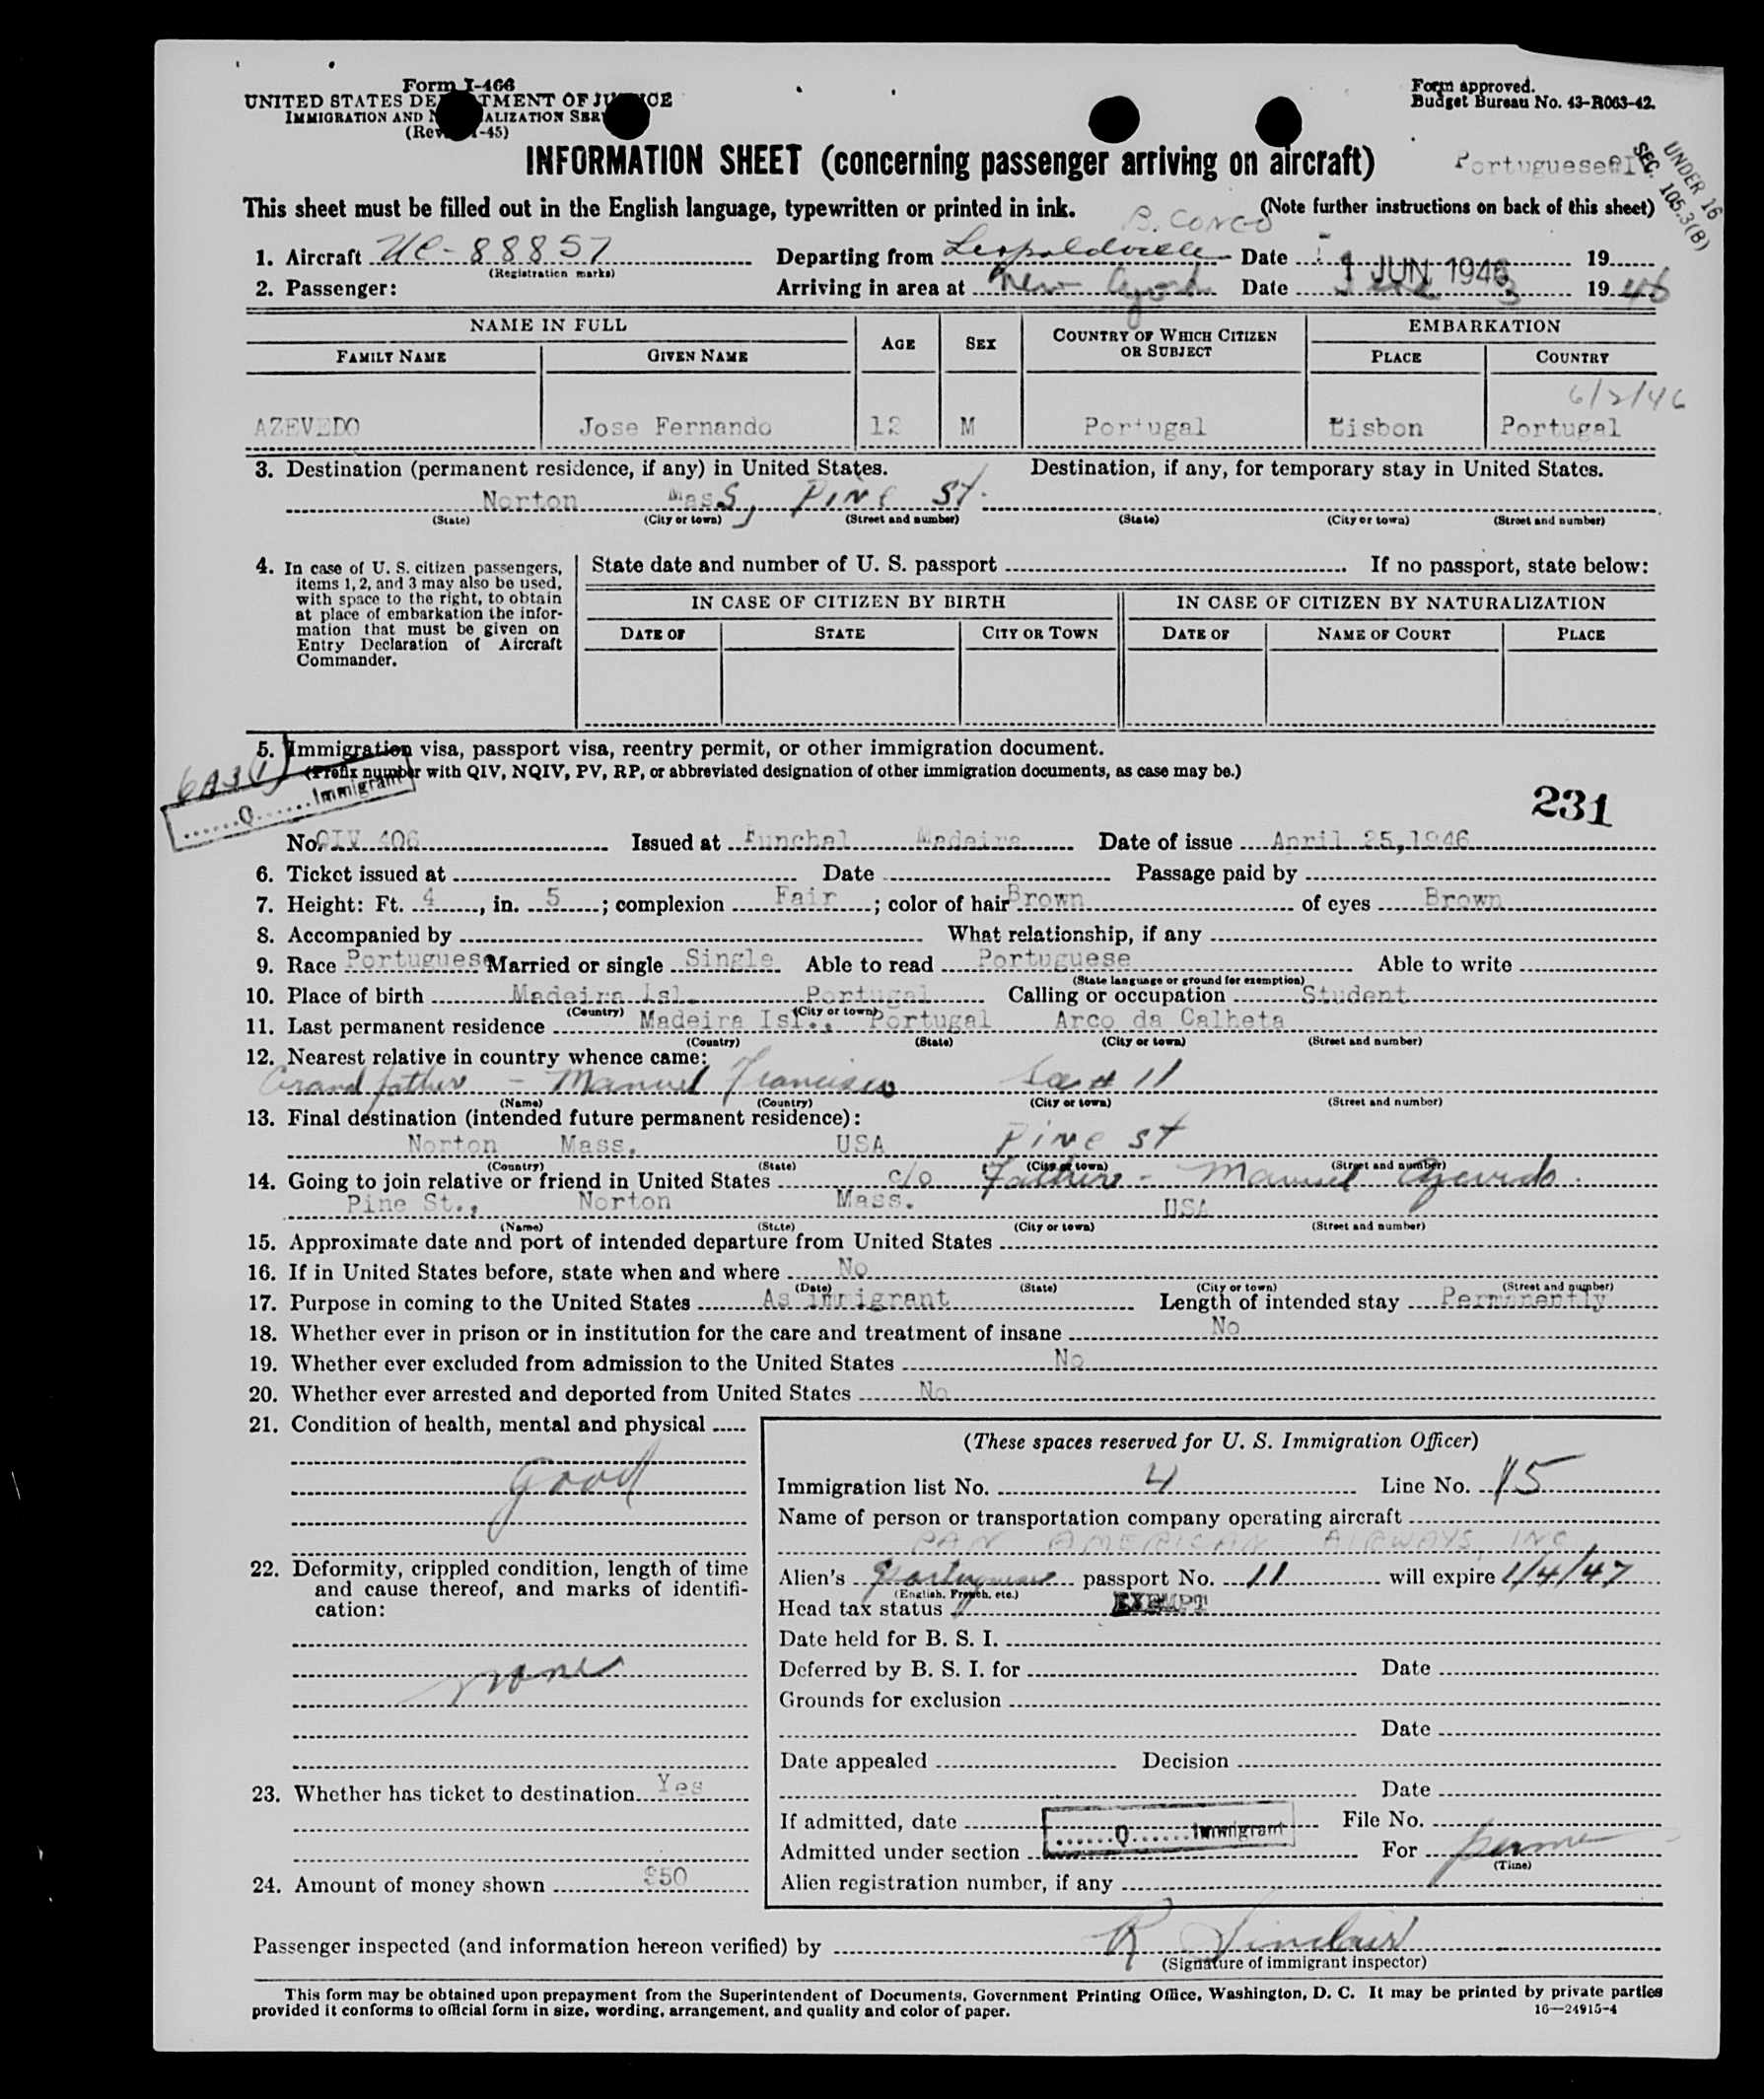 Form I-466
UNITED STATES DEPARTMENT OF JUSTICE
IMMIGRATION AND NATURALIZATION SERVICE
(Rev. -45)
Form approved.
Budget Bureau No. 43-R063-42.
INFORMATION SHEET (concerning passenger arriving on aircraft)
Portuguese
UNDER 16
SEC. 105.3(B)
This sheet must be filled out in the English language, typewritten or printed in ink. (Note further instructions on back of this sheet)
B. CONGO
1. Aircraft NC-88857 Departing from Leopoldville Date 1 JUN 1946 19
(Registration marks)
2. Passenger: Arriving in area at New York Date June 3 1946
NAME IN FULL AGE SEX COUNTRY OF WHICH CITIZEN OR SUBJECT EMBARKATION
FAMILY NAME GIVEN NAME PLACE COUNTRY
6/2/46
AZEVEDO Jose Fernando 12 M Portugal Lisbon Portugal
3. Destination (permanent residence, if any) in United States. Destination, if any, for temporary stay in United States.
Norton Mass, PINE ST.
(State) (City or town) (Street and number) (State) (City or town) (Street and number)
4. In case of U. S. citizen passengers,
items 1, 2, and 3 may also be used,
with space to the right, to obtain
at place of embarkation the infor-
mation that must be given on
Entry Declaration of Aircraft
Commander.
State date and number of U. S. passport If no passport, state below:
IN CASE OF CITIZEN BY BIRTH IN CASE OF CITIZEN BY NATURALIZATION
DATE OF STATE CITY OR TOWN DATE OF NAME OF COURT PLACE
5. Immigration visa, passport visa, reentry permit, or other immigration document.
(Prefix number with QIV, NQIV, PV, RP, or abbreviated designation of other immigration documents, as case may be.)
6A3(1)
Q Immigrant
231
No. QIV 406 Issued at Funchal Madeira Date of issue April 25,1946
6. Ticket issued at Date Passage paid by
7. Height: Ft. 4, in. 5; complexion Fair; color of hair Brown of eyes Brown
8. Accompanied by What relationship, if any
9. Race Portuguese Married or single Single Able to read Portuguese Able to write
(State language or ground for exemption)
10. Place of birth Madeira Isl. Portugal Calling or occupation Student
(Country) (City or town)
11. Last permanent residence Madeira Isl., Portugal Arco da Calheta
(Country) (State) (City or town) (Street and number)
12. Nearest relative in country whence came:
Grandfather - Manuel Francisco 11
(Name) (Country) (City or town) (Street and number)
13. Final destination (intended future permanent residence):
Norton Mass. USA Pine st
(Country) (State) (City or town) (Street and number)
14. Going to join relative or friend in United States c/o Father - Manuel Azevedo.
Pine St., Norton Mass. USA
(Name) (State) (City or town) (Street and number)
15. Approximate date and port of intended departure from United States
16. If in United States before, state when and where No
(Date) (State) (City or town) (Street and number)
17. Purpose in coming to the United States As immigrant Length of intended stay Permanently
18. Whether ever in prison or in institution for the care and treatment of insane No
19. Whether ever excluded from admission to the United States No
20. Whether ever arrested and deported from United States No
21. Condition of health, mental and physical
good
22. Deformity, crippled condition, length of time
and cause thereof, and marks of identifi-
cation:
none
23. Whether has ticket to destination Yes
24. Amount of money shown $50
(These spaces reserved for U. S. Immigration Officer)
Immigration list No. 4 Line No. 15
Name of person or transportation company operating aircraft
PAN AMERICAN AIRWAYS, INC
Alien's Portuguese passport No. 11 will expire 1/4/47
(English, French, etc.)
Head tax status EXEMPT
Date held for B. S. I.
Deferred by B. S. I. for Date
Grounds for exclusion
Date
Date appealed Decision
Date
If admitted, date File No.
Q Immigrant
Admitted under section For perm
(Time)
Alien registration number, if any
Passenger inspected (and information hereon verified) by R Sinclair
(Signature of immigrant inspector)
This form may be obtained upon prepayment from the Superintendent of Documents, Government Printing Office, Washington, D. C. It may be printed by private parties
provided it conforms to official form in size, wording, arrangement, and quality and color of paper.
16—24915-4